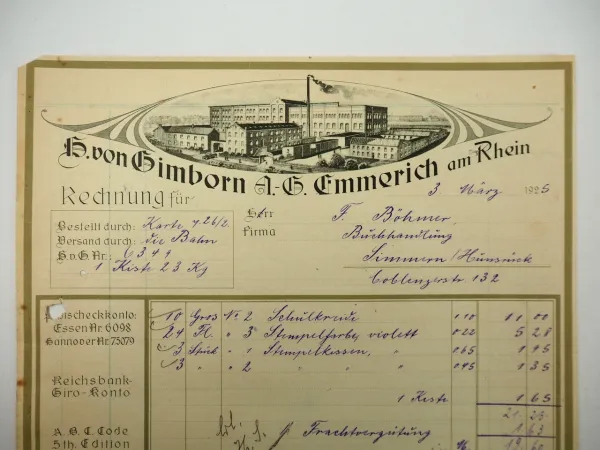 H. von Gimborn A.-G. Emmerich am Rhein
3 März 1925
Rechnung für
Herr
Firma
F. Böhmer,
Buchhandlung
Simmern/Hunsrück
Coblenzerstr. 132
Bestellt durch: Karte v. 26/2.
Versand durch: die Bahn
H.v.G. Nr.: 6341
1 Kiste 23 Kg
Postscheckkonto:
Essen Nr. 6098
Hannover Nr. 75079
Reichsbank-
Giro-Konto
A.B.C. Code
5th. Edition
10 Gros No 2 Schulkreide 1.10 11 00
24 Fl. " 3a Stempelfarbe, violett 0.22 5 28
3 Stück " 1 Stempelkissen, " 0.65 1 95
3 " " 2 " " 0.45 1 35
1 Kiste 1 65
21. 23
Frachtvergütung 1 63